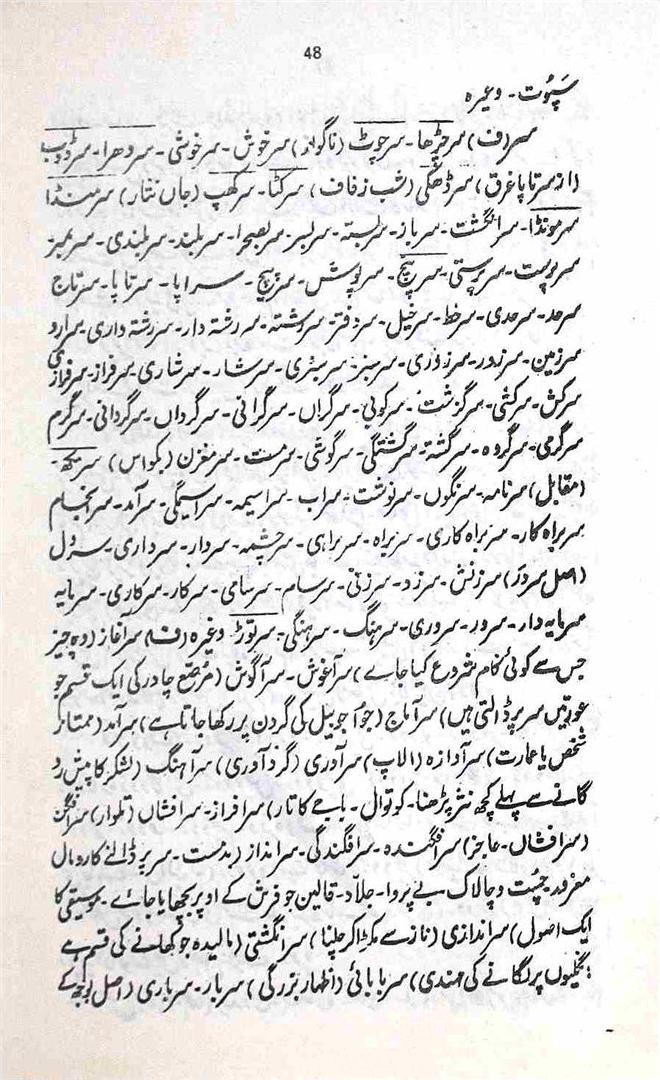 48
سپوت۔ وغیرہ
سر (ف) سرچڑھا۔ سرچوٹ (ناگوار) سرخوش۔ سرخوشی۔ سردھرا۔ سرڈوب
(از سرتاپا غرق) سرڈھکی (شب زفاف) سرکٹا۔ سرکھپ (جاں نثار) سرمنڈا
سرمونڈا۔ سرانگشت۔ سرباز۔ سربستہ۔ سربسر۔ سربصحرا۔ سربلند۔ سربلندی۔ سربمہر
سرپرست۔ سرپرستی۔ سرپیچ۔ سرپوش۔ سرپیچ۔ سراپا۔ سرتاپا۔ سرتاج
سرحد۔ سرحدی۔ سرخط۔ سرخیل۔ سردفتر۔ سررشتہ۔ سررشتہ دار۔ سررشتہ داری۔
سرزمین۔ سرزور۔ سرزوری۔ سرسبز۔ سرسبزی۔ سرشار۔ سرشاری۔ سرفراز۔ سرفرازی
سرکش۔ سرکشی۔ سرگزشت۔ سرکوبی۔ سرگراں۔ سرگرانی۔ سرگرداں۔ سرگردانی۔ سرگرم
سرگرمی۔ سرگروہ۔ سرگشتہ۔ سرگشتگی۔ سرگوشی۔ سرمست۔ سرمغزن (بکواس) سرمکھ۔
(مقابل) سرنامہ۔ سرنگوں۔ سرنوشت۔ سراب۔ سراسیمہ۔ سراسیمگی۔ سرآمد۔ سرانجام
سربراہ کار۔ سربراہ کاری۔ سربراہ۔ سربراہی۔ سرچشمہ۔ سردار۔ سرداری۔
(اصل سردر) سرزنش۔ سرزد۔ سرزنی۔ سرسام۔ سرسامی۔ سرکار۔ سرکاری۔ سرمایہ
سرمایہ دار۔ سرور۔ سروری۔ سرہنگ۔ سرہنگی۔ سرتوڑ۔ وغیرہ (ف) سرآغاز (وہ چیز
جس سے کوئی کام شروع کیا جاے) سرآغوش۔ سرآگوش (مرصّع چادر کی ایک قسم جو
عورتیں سر پر ڈالتی ہیں) سرآماج (جوا جو بیل کی گردن پر رکھا جاتا ہے) سرآمد (ممتاز
شخص یا عمارت) سرآوازہ (الاپ) سرآوری (گردآوری) سرآہنگ (لشکر کا پیش رو
گانے سے پہلے کچھ نثر پڑھنا۔ کوتوال۔ باجے کا تار) سرافراز۔ سرافشاں (تلوار) سرافگن
(سرافشاں۔ عاجز) سرافگندہ۔ سرافگندگی۔ سرانداز (بدمست۔ سر پر ڈالنے کا رومال
مغرور۔ چست و چالاک۔ بے پروا۔ جلاد۔ قالین جو فرش کے اوپر بچھایا جائے۔ موسیقی کا
ایک اصول) سراندازی (ناز سے مکڑا کر چلنا) سرانگشتی (مالیدہ جو کھانے کی قسم ہے
انگلیوں پر لگانے کی مہندی) سربابائی (اظہار بزرگی) سربار۔ سرباری (اصل بوجھ کے